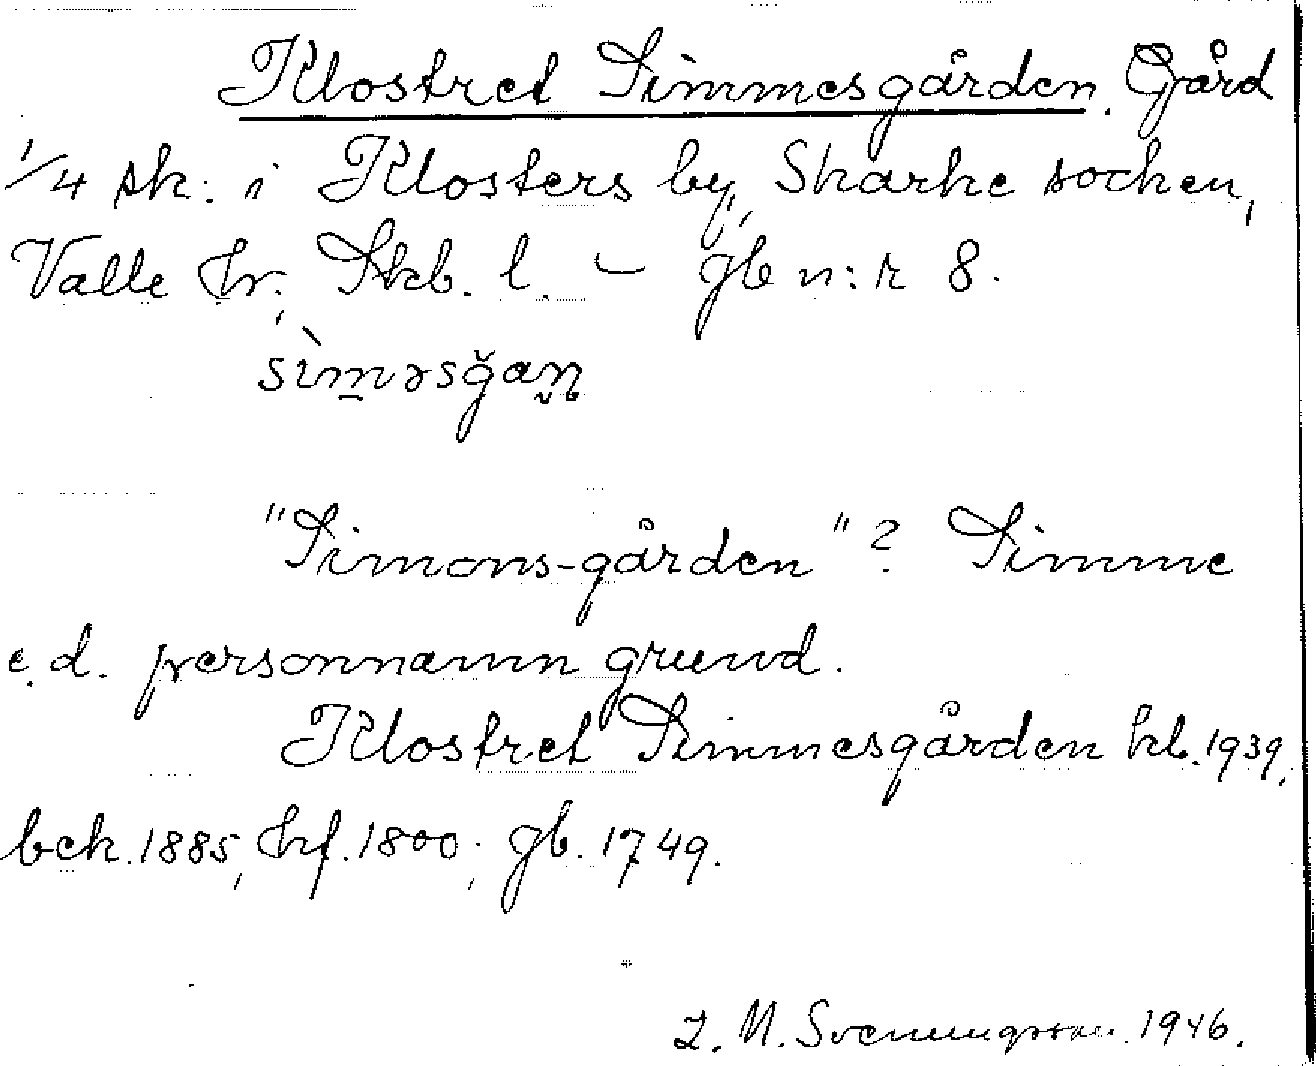 Klostret Simmesgården. Gård
1/4 sk: i Klosters by, Skarke socken,
Valle hr, Skb. l. – gb n:r 8.
sìm̲əsğan̪
"Simons-gården"? Simme
e.d. personnamn grund.
Klostret Simmesgården kb. 1939,
bek. 1885, hf. 1800; gb. 1749.
M. Svenningsson 1946.